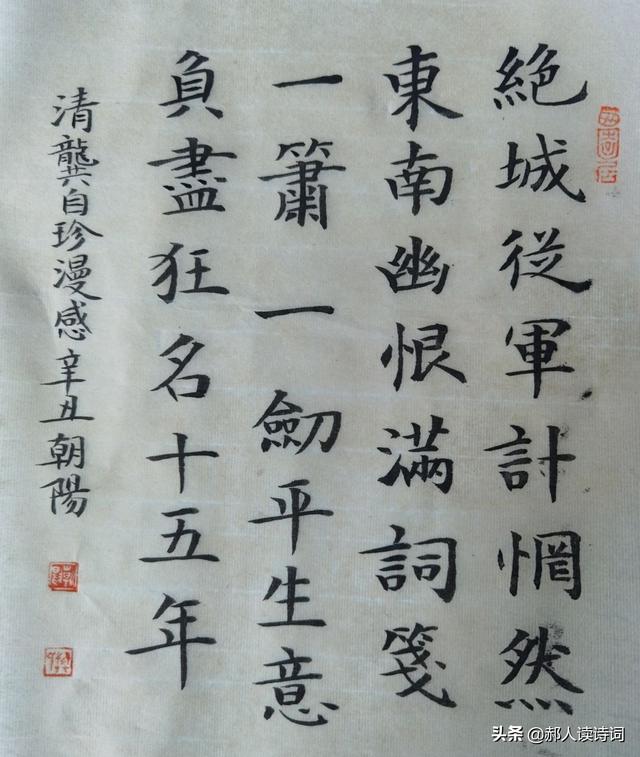 絶城從軍計惘然
東南幽恨滿詞箋
一簫一劒平生意
負盡狂名十五年
清龔自珍漫感 辛丑朝陽
头条 @郝人读诗词